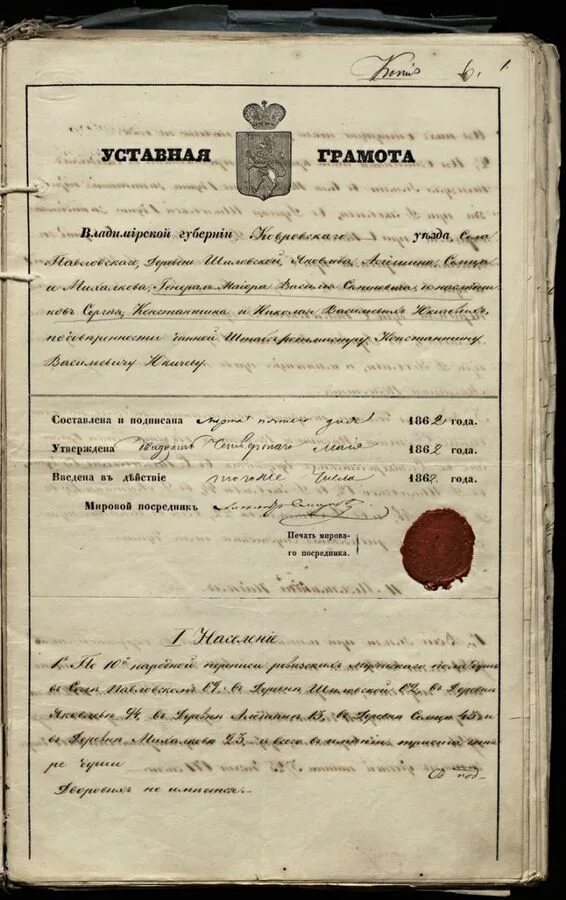 Копія 6. 1
УСТАВНАЯ ГРАМОТА
Владимірской губерніи, Ковровскаго уѣзда Села
Павловскаго, Деревень Шиловской, Яковлева, Алёшина, Сельца
и Михалкова, Генералъ-Маіора Василья Семеновича и наслѣдни-
ковъ Сергѣя, Константина и Николая Васильевыхъ
по довѣренности данной Штабсъ-ротмистру Константину
Васильевичу
Составлена и подписана Марта дня 1862 года.
Утверждена двадцать Четвертаго Мая 1862 года.
Введена въ дѣйствіе тогоже Числа 1862 года.
Мировой посредникъ
Печать мирова-
го посредника.
I Населеніе
1е По 10й народной переписи ревизскихъ мужескаго пола душъ
въ Селѣ Павловскомъ 69, въ Деревни Шиловской 62, въ Деревни
Яковлевѣ 94, въ Деревни Алёшинѣ 13, въ Деревни 43 и
въ Деревни Михалковѣ 23, и всего въ имѣніи триста четы-
ре души
Дворовыхъ не имѣется.